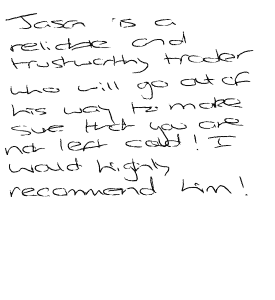 Jason is a
reliable and
trustworthy trader
who will go out of
his way to make
sure that you are
not left cold! I
would highly
recommend him!